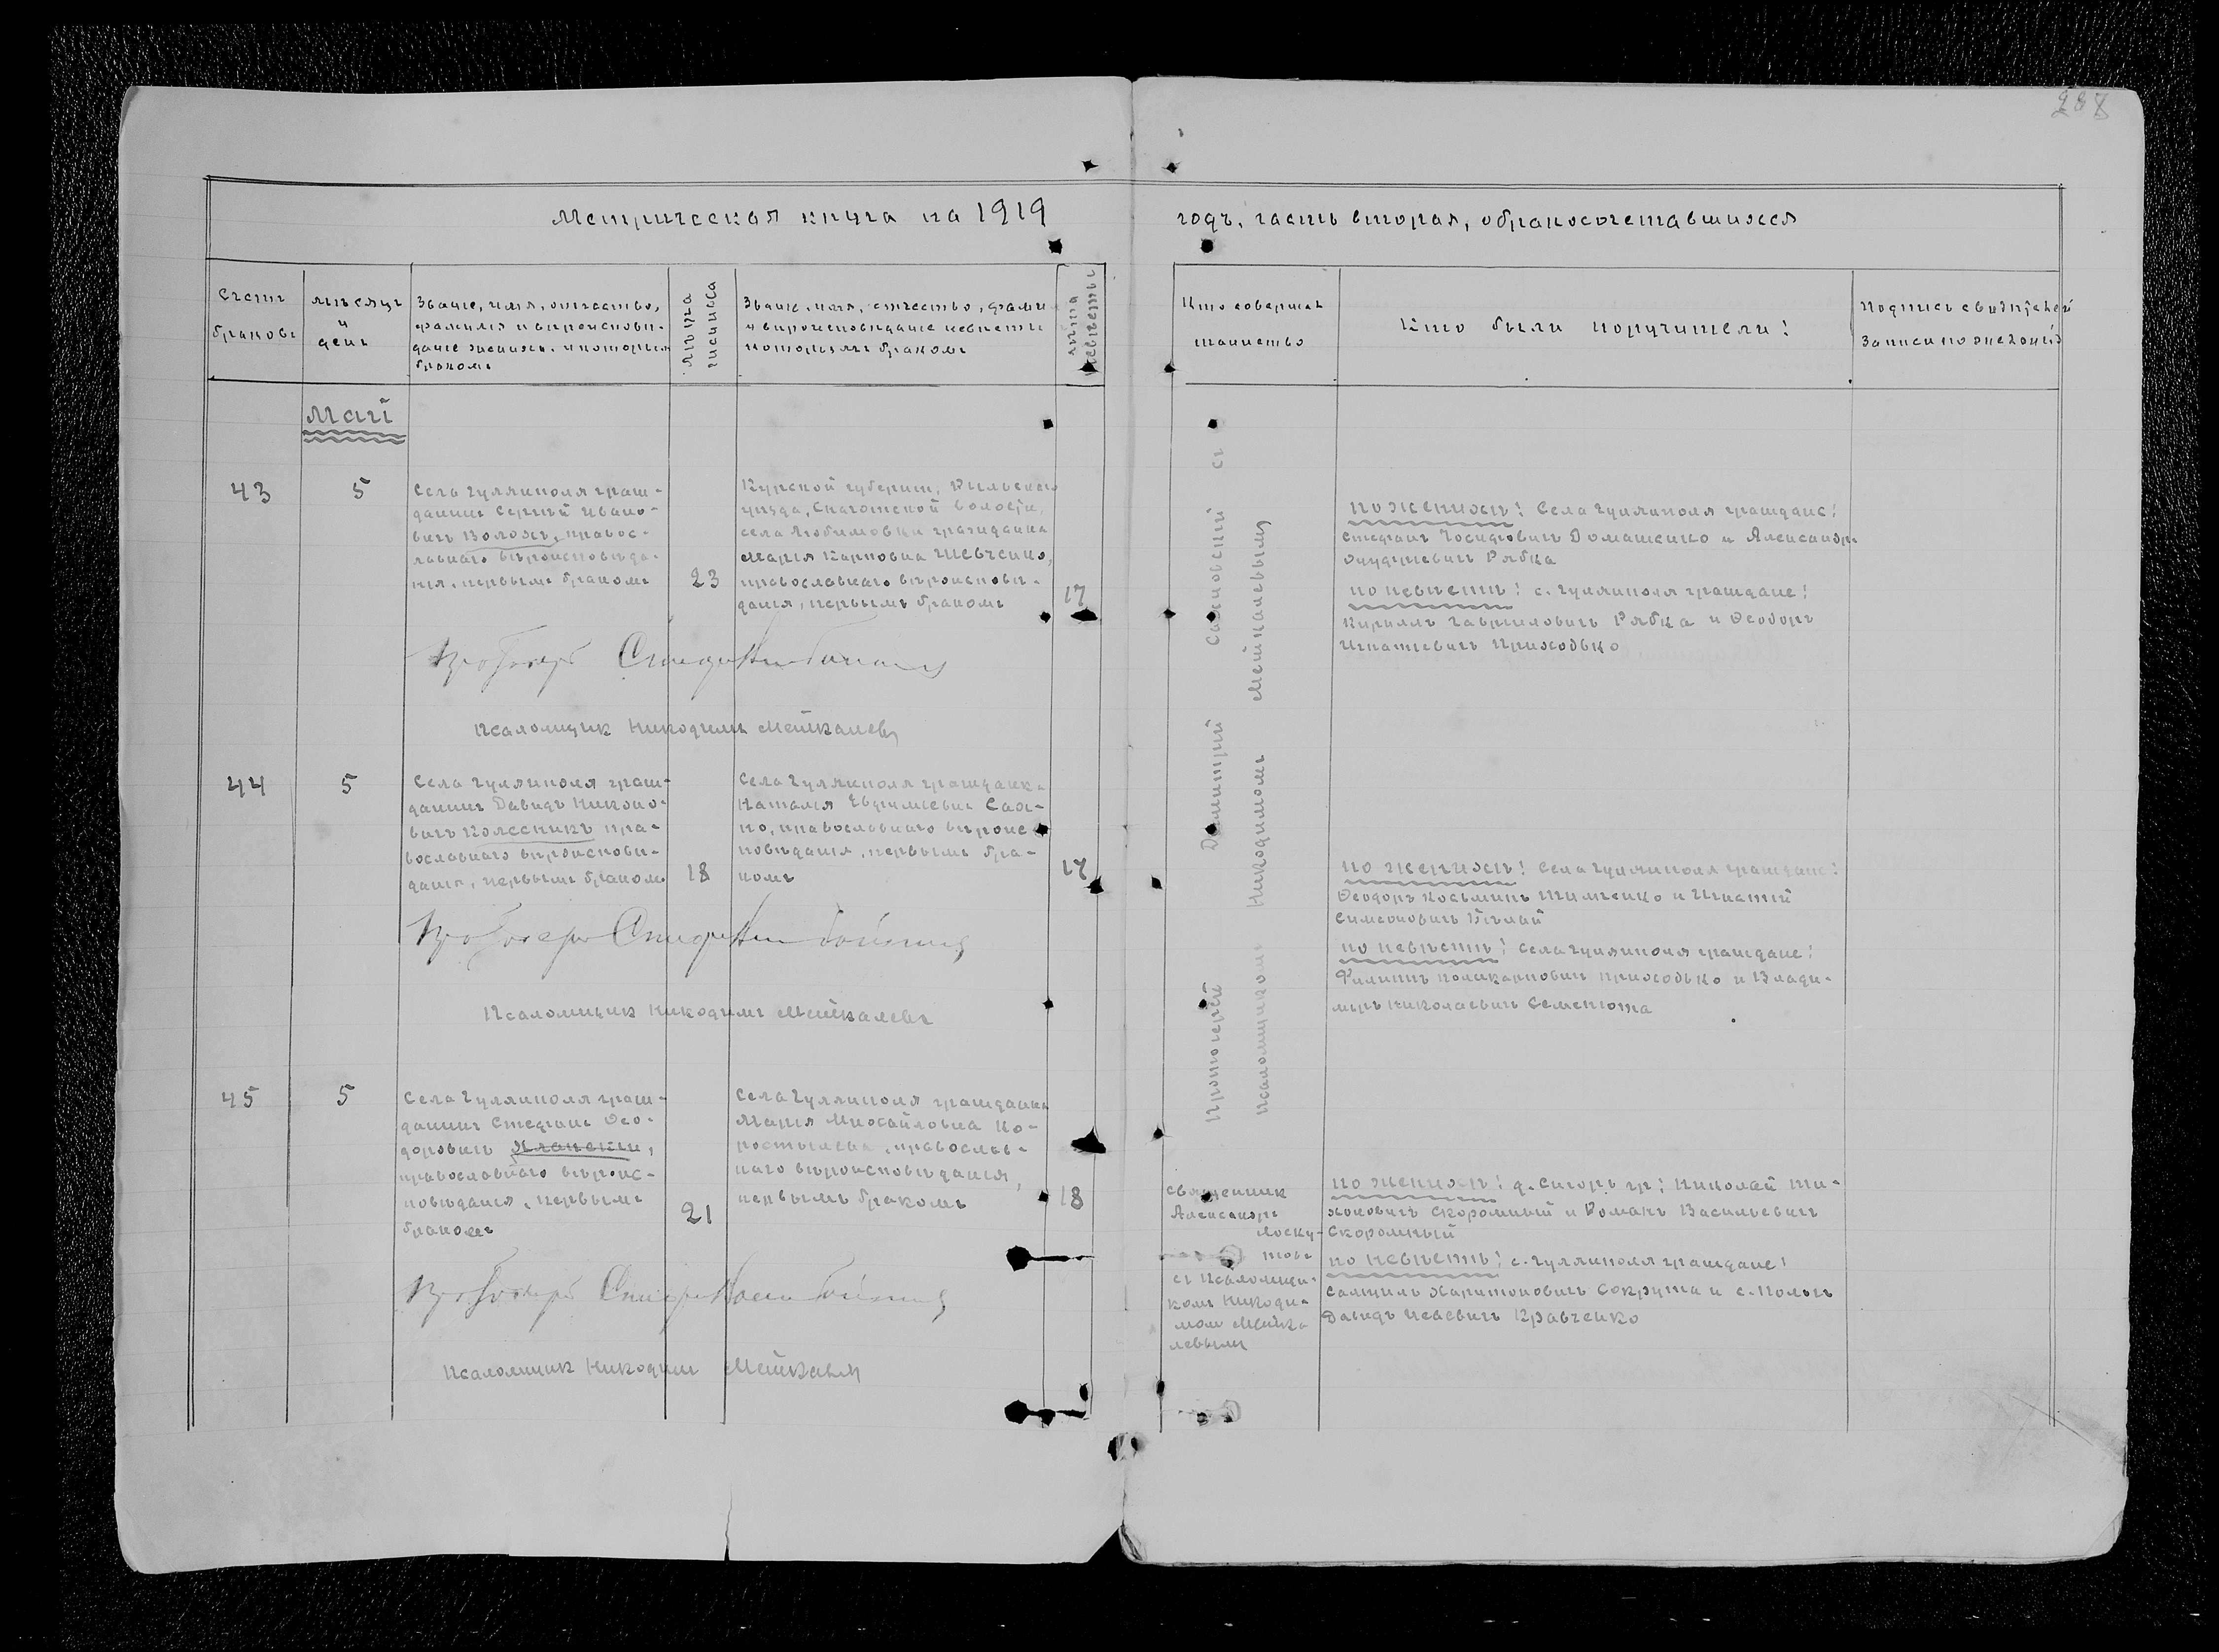 288
Метрическая книга на 1919 годъ, часть вторая, о бракосочетавшихся
Счетъ браковъ
Мѣсяцъ и день
Званіе, имя, отчество,
фамилія и вѣроисповѣ-
даніе жениха, и которымъ
бракомъ
Лѣта жениха
Званіе, имя, отчество, фамил
и вѣроисповѣданіе невѣсты
которымъ бракомъ
Лѣта невѣсты
Кто совершал
таинство
Кто были поручители:
Подпись свидѣтелей
записи по
Май
43
5
Села Гуляйполя граж-
данинъ Сергій Ивано-
вичъ Волохъ, правос-
лавнаго вѣроисповѣда-
нія, первымъ бракомъ
23
Курской губерніи, Рыльскаго
уѣзда, Снаготской волости,
села Любимовки гражданка
Марія Карповна Шевченко,
православнаго вѣроисповѣ-
данія, первымъ бракомъ
17
Протоіерей Димитрий Сахновский съ
псаломщиком Никодимомъ Мейкалевымъ
по женихѣ: Села Гуляйполя граждане:
Стефанъ Іосифовичъ Домашенко и Александръ
Онуфріевичъ Рябка
по невѣстѣ: с. Гуляйполя граждане:
Кириллъ Гавриловичъ Рябка и Ѳеодоръ
Игнатіевичъ Приходько
Псаломщик Никодимъ Мейкалевъ
44
5
Села Гуляйполя граж-
данинъ Давидъ Никоно-
вичъ Колесникъ пра-
вославнаго вѣроисповѣ-
данія, первымъ бракомъ
18
Села Гуляйполя гражданка
Наталія Евфиміевна Сах-
но, православнаго вѣроис-
повѣданія, первымъ бра-
комъ
17
по женихѣ: Села Гуляйполя граждане:
Ѳеодоръ Косьминъ Тимченко и Игнатій
Симеоновичъ Бѣлай
по невѣстѣ: Села Гуляйполя граждане:
Филиппъ Поликарповичъ Приходько и Влади-
миръ Николаевичъ Семенюта
Псаломщик Никодимъ Мейкалевъ
45
5
Села Гуляйполя граж-
данинъ Стефанъ Ѳео-
доровичъ
православнаго вѣроис-
повѣданія, первымъ
бракомъ
21
Села Гуляйполя гражданка
Марія Михайловна Ко-
ростылева, православ-
наго вѣроисповѣданія,
первымъ бракомъ
18
Священник
Александръ
Лоску-
товъ
съ Псаломщи-
комъ Никоди-
мом Мейка-
левымъ
по женихѣ: гр: Николай Ти-
хоновичъ Скоромный и Романъ Васильевичъ
Скоромный
по невѣстѣ: с. Гуляйполя граждане:
Самуилъ Харитоновичъ Сокрута и с. Пологъ
Давидъ Кравченко
Псаломщик Никодим Мейкалевъ